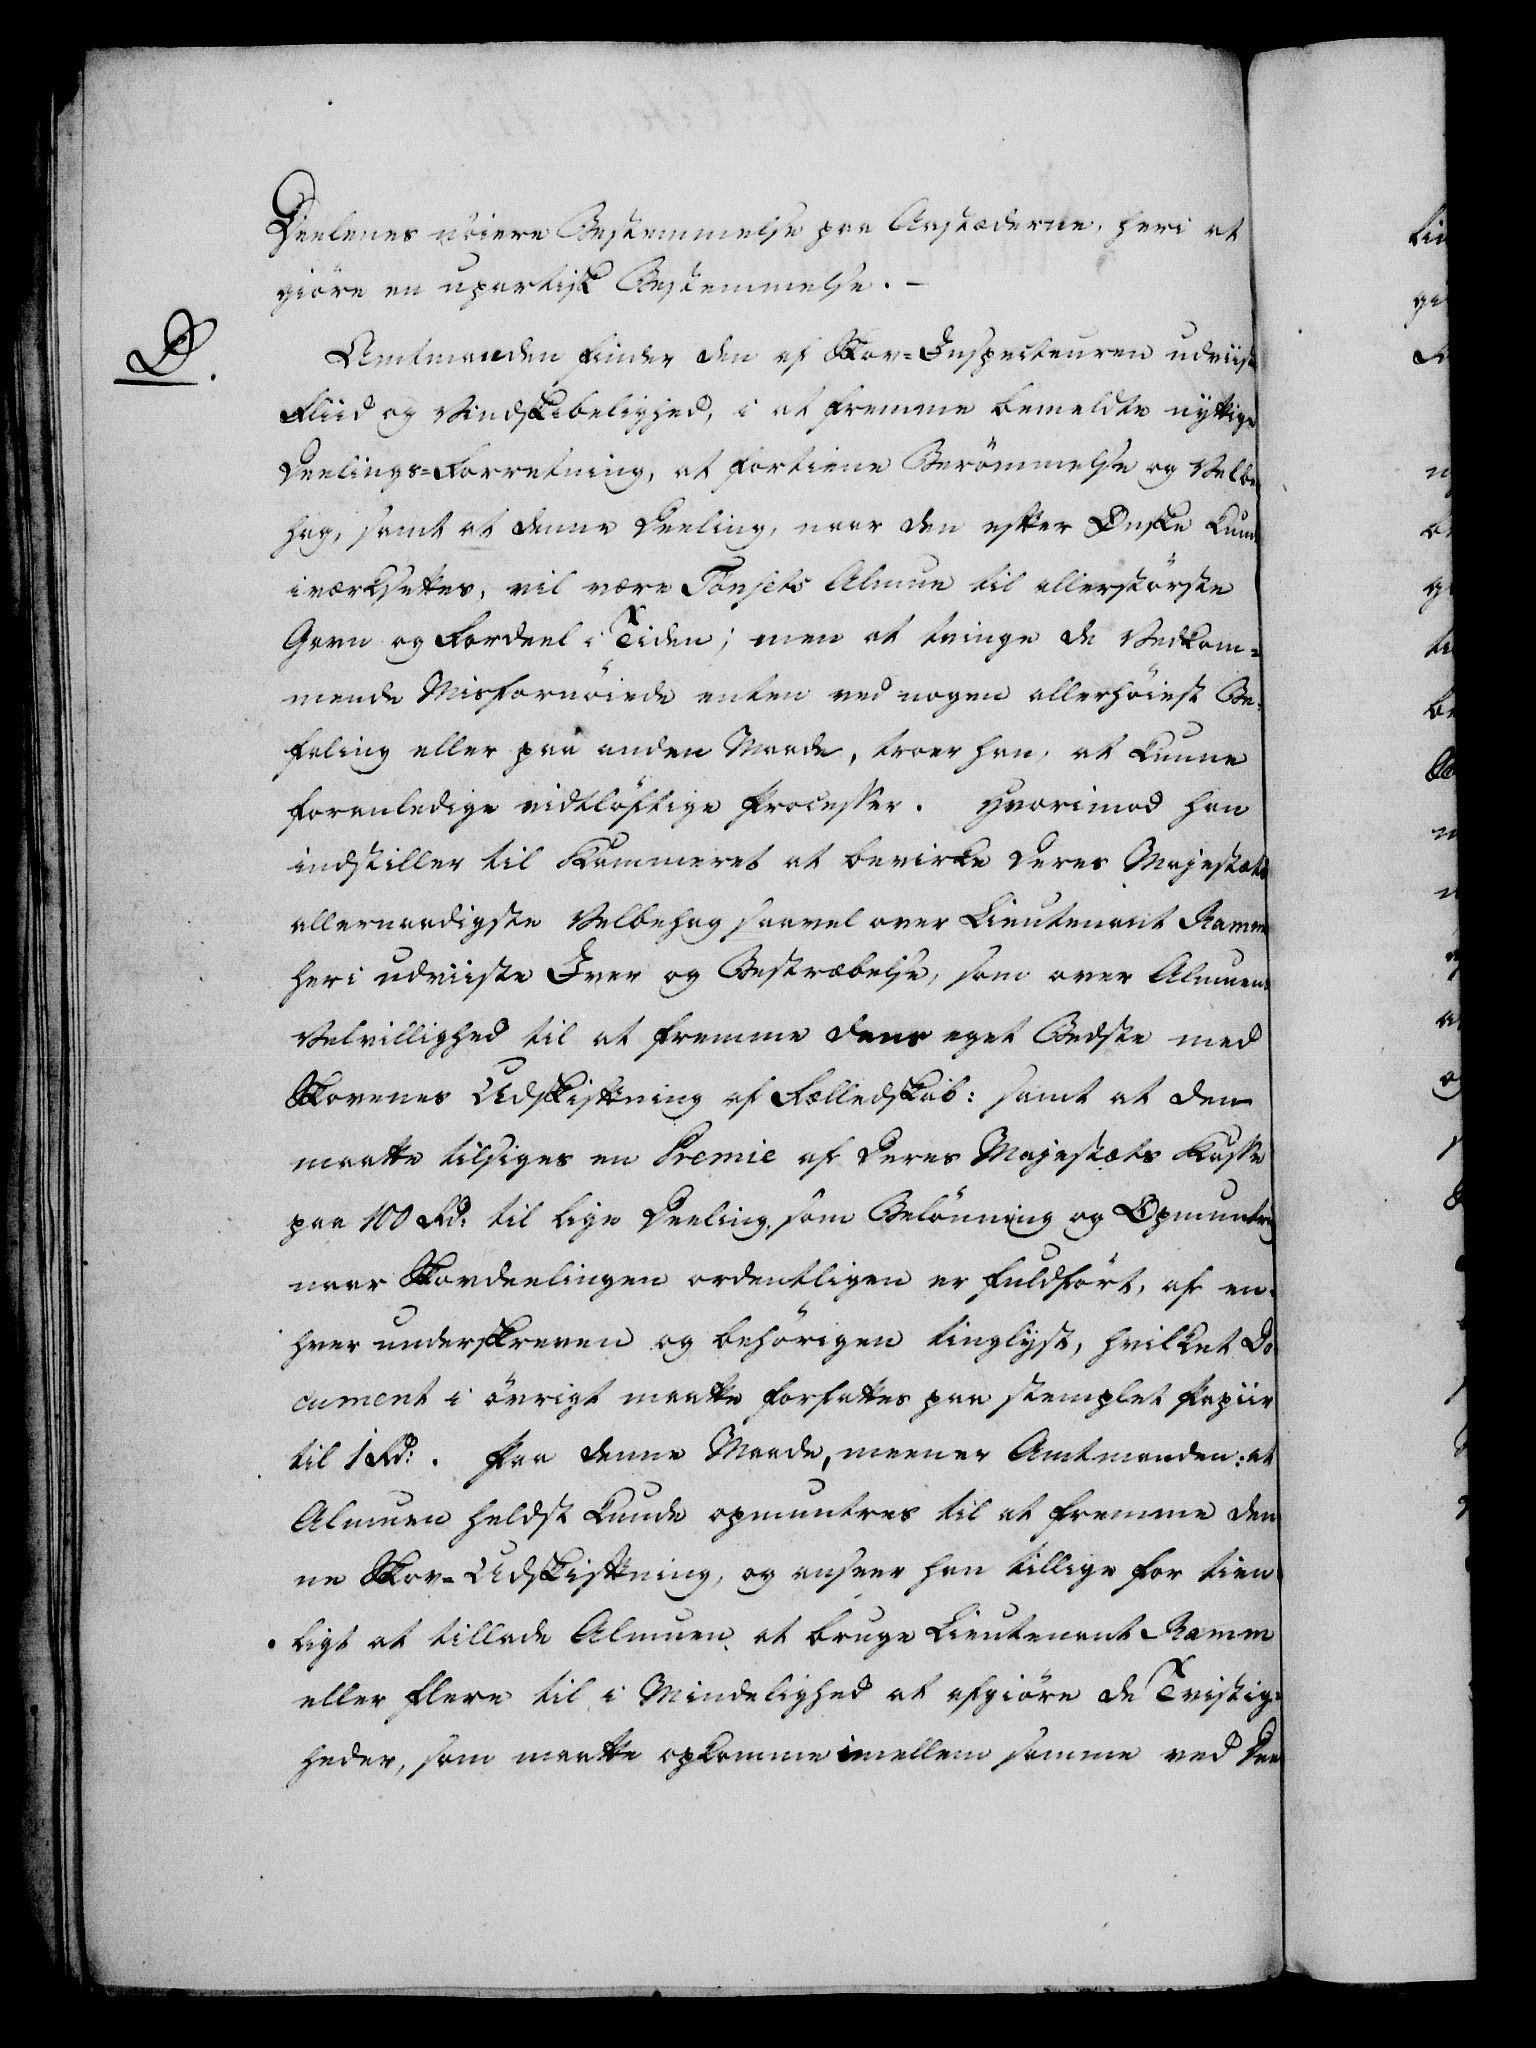 Deelenes nöiere Bestemmelse paa Aastæderne, heri at
giöre en upartisk Bestemmelse. –
D.
Amtmanden finder den af Skov=Inspecteuren udviiste
Fliid og Vindskibelighed, i at fremme bemeldte nyttige
Deelings=Forretning, at fortiene Berömmelse og Velbe
hag, samt at denne Deeling, naar den efter Ønske kund
iværksettes, vil være Tönsets Almue til allerstörste
Gavn og Fordeel i Tiden; men at tvinge de Vedkom=
mende Misfornöiede enten ved nogen allerhöiest Be=
faling eller paa anden Maade, troer han, at kunne
foranledige vidtlöftige Processer. Hvorimod han
indstiller til Kammeret at bevirke Deres Majestæts
allernaadigste Velbehag saavel over Lieutenant Ramms
heri udviiste Iver og Bestræbelse, som over Almuens
Velvillighed til at fremme dens eget Bedste med
Skovenes Udskiftning af Fælledskab: samt at den
maatte tilsiges en Premie af Deres Majestæts Kasse
paa 100 Rd: til lige Deeling, som Belönning og Opmuntrig
naar Skovdeelingen ordentligen er fuldfört, af en=
hver underskreven og behörigen tinglyst, hvilket Do
cument i övrigt maatte forfattes paa stemplet Papiir
til 1 Rd:. Paa denne Maade, meener Amtmanden: at
Almuen heldst kunde opmuntres til at fremme den
ne Skov=Udskiftning, og anseer han tillige for tien
ligt at tillade Almuen at bruge Lieutenant Ramm
eller flere til i Mindelighed at afgiöre de Tvistig=
heder, som maatte opkomme imellem samme ved Dee